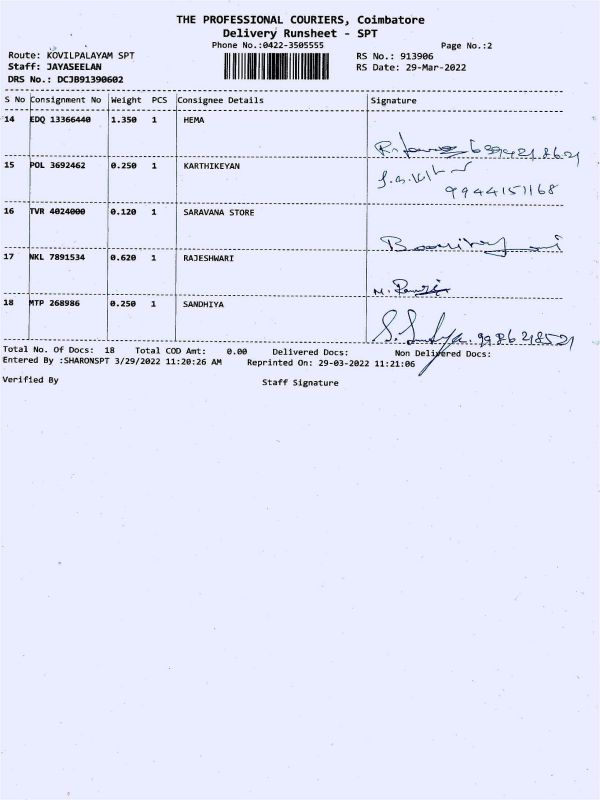 THE PROFESSIONAL COURIERS, Coimbatore
Delivery Runsheet - SPT
Phone No.:0422-3505555 Page No.:2
Route: KOVILPALAYAM SPT RS No.: 913906
Staff: JAYASEELAN RS Date: 29-Mar-2022
DRS No.: DCJB91390602
S No Consignment No Weight PCS Consignee Details Signature
14 EDQ 13366440 1.350 1 HEMA
15 POL 3692462 0.250 1 KARTHIKEYAN
9944151168
16 TVR 4024000 0.120 1 SARAVANA STORE
17 NKL 7891534 0.620 1 RAJESHWARI
18 MTP 268986 0.250 1 SANDHIYA
Total No. Of Docs: 18 Total COD Amt: 0.00 Delivered Docs: Non Delivered Docs:
Entered By :SHARONSPT 3/29/2022 11:20:26 AM Reprinted On: 29-03-2022 11:21:06
Verified By Staff Signature